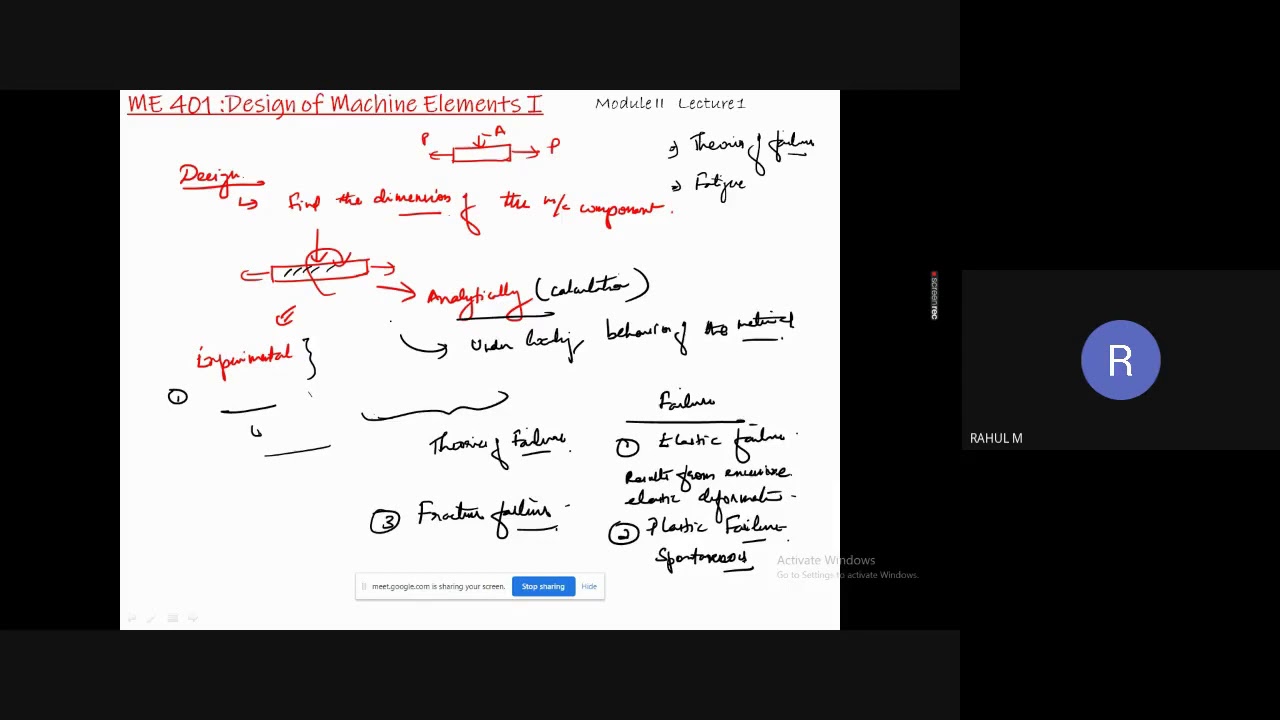 ME 401 :Design of Machine Elements I
Module II Lecture 1
P A P
Theories of failure
Fatigue
Design
Find the dimension of the m/c component.
Analytically (calculation)
Under loading behaviour of the material.
Experimental
①
Failure
Theories of Failure
① Elastic failure
Results from excessive
elastic deformation
③ Fracture failure
② Plastic Failure
meet.google.com is sharing your screen. Stop sharing Hide
Activate Windows
Go to Settings to activate Windows.
screenrec
R
RAHUL M